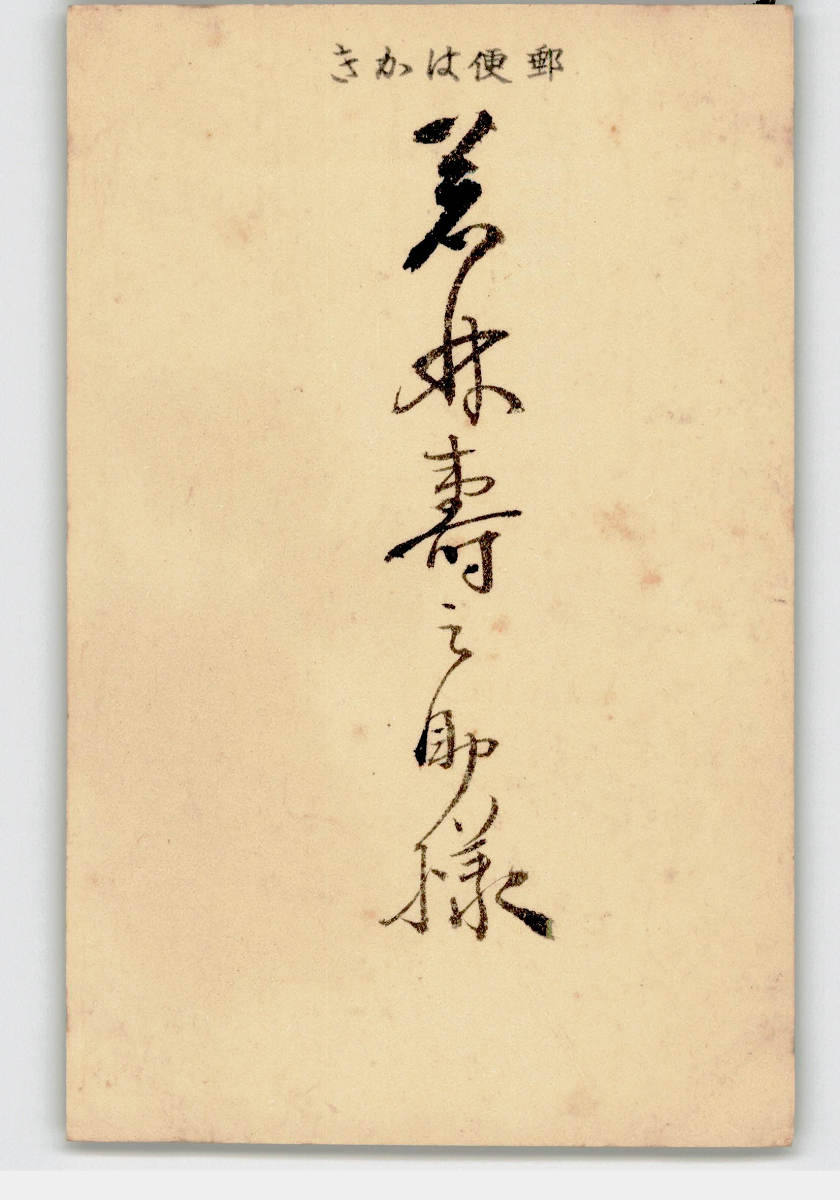 郵便はかき
若林壽之助様